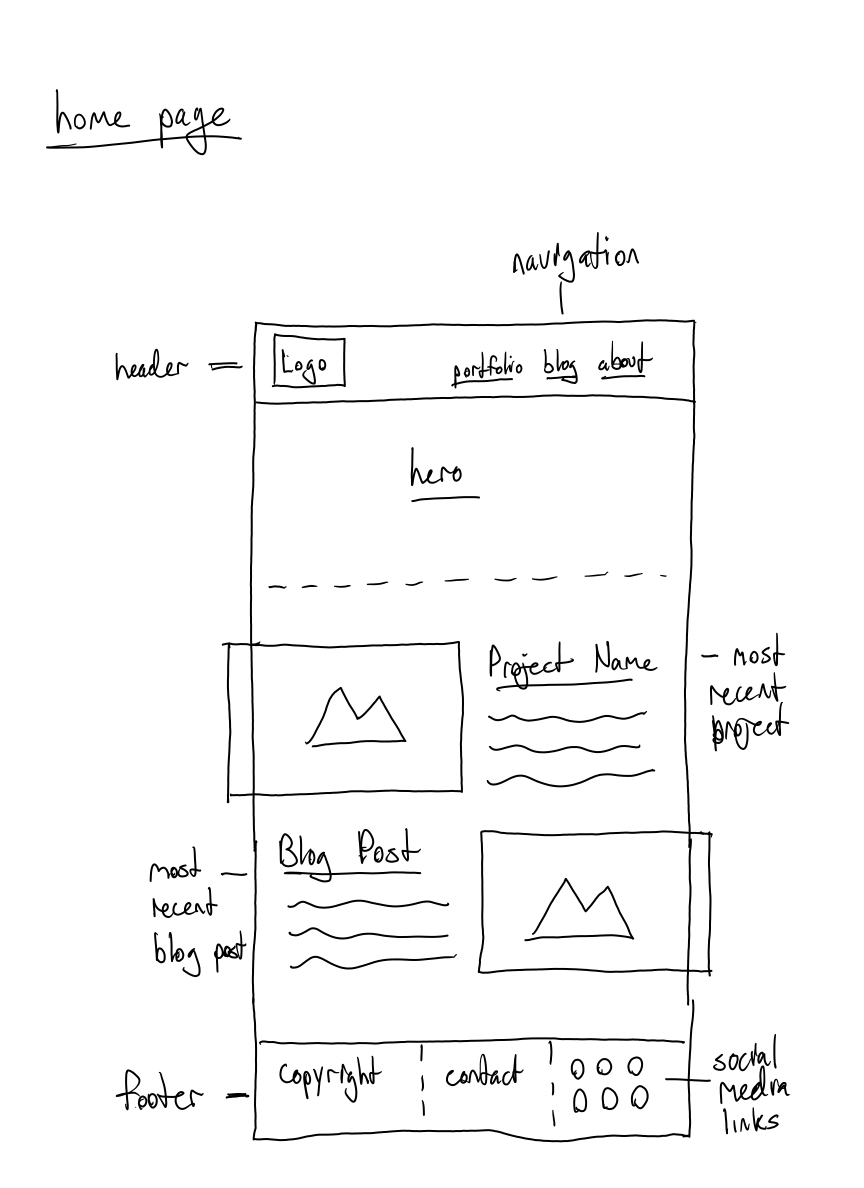 home page
navigation
header
Logo
portfolio blog about
hero
Project Name
most
recent
project
Blog Post
most
recent
blog post
copyright
contact
footer
social
media
links